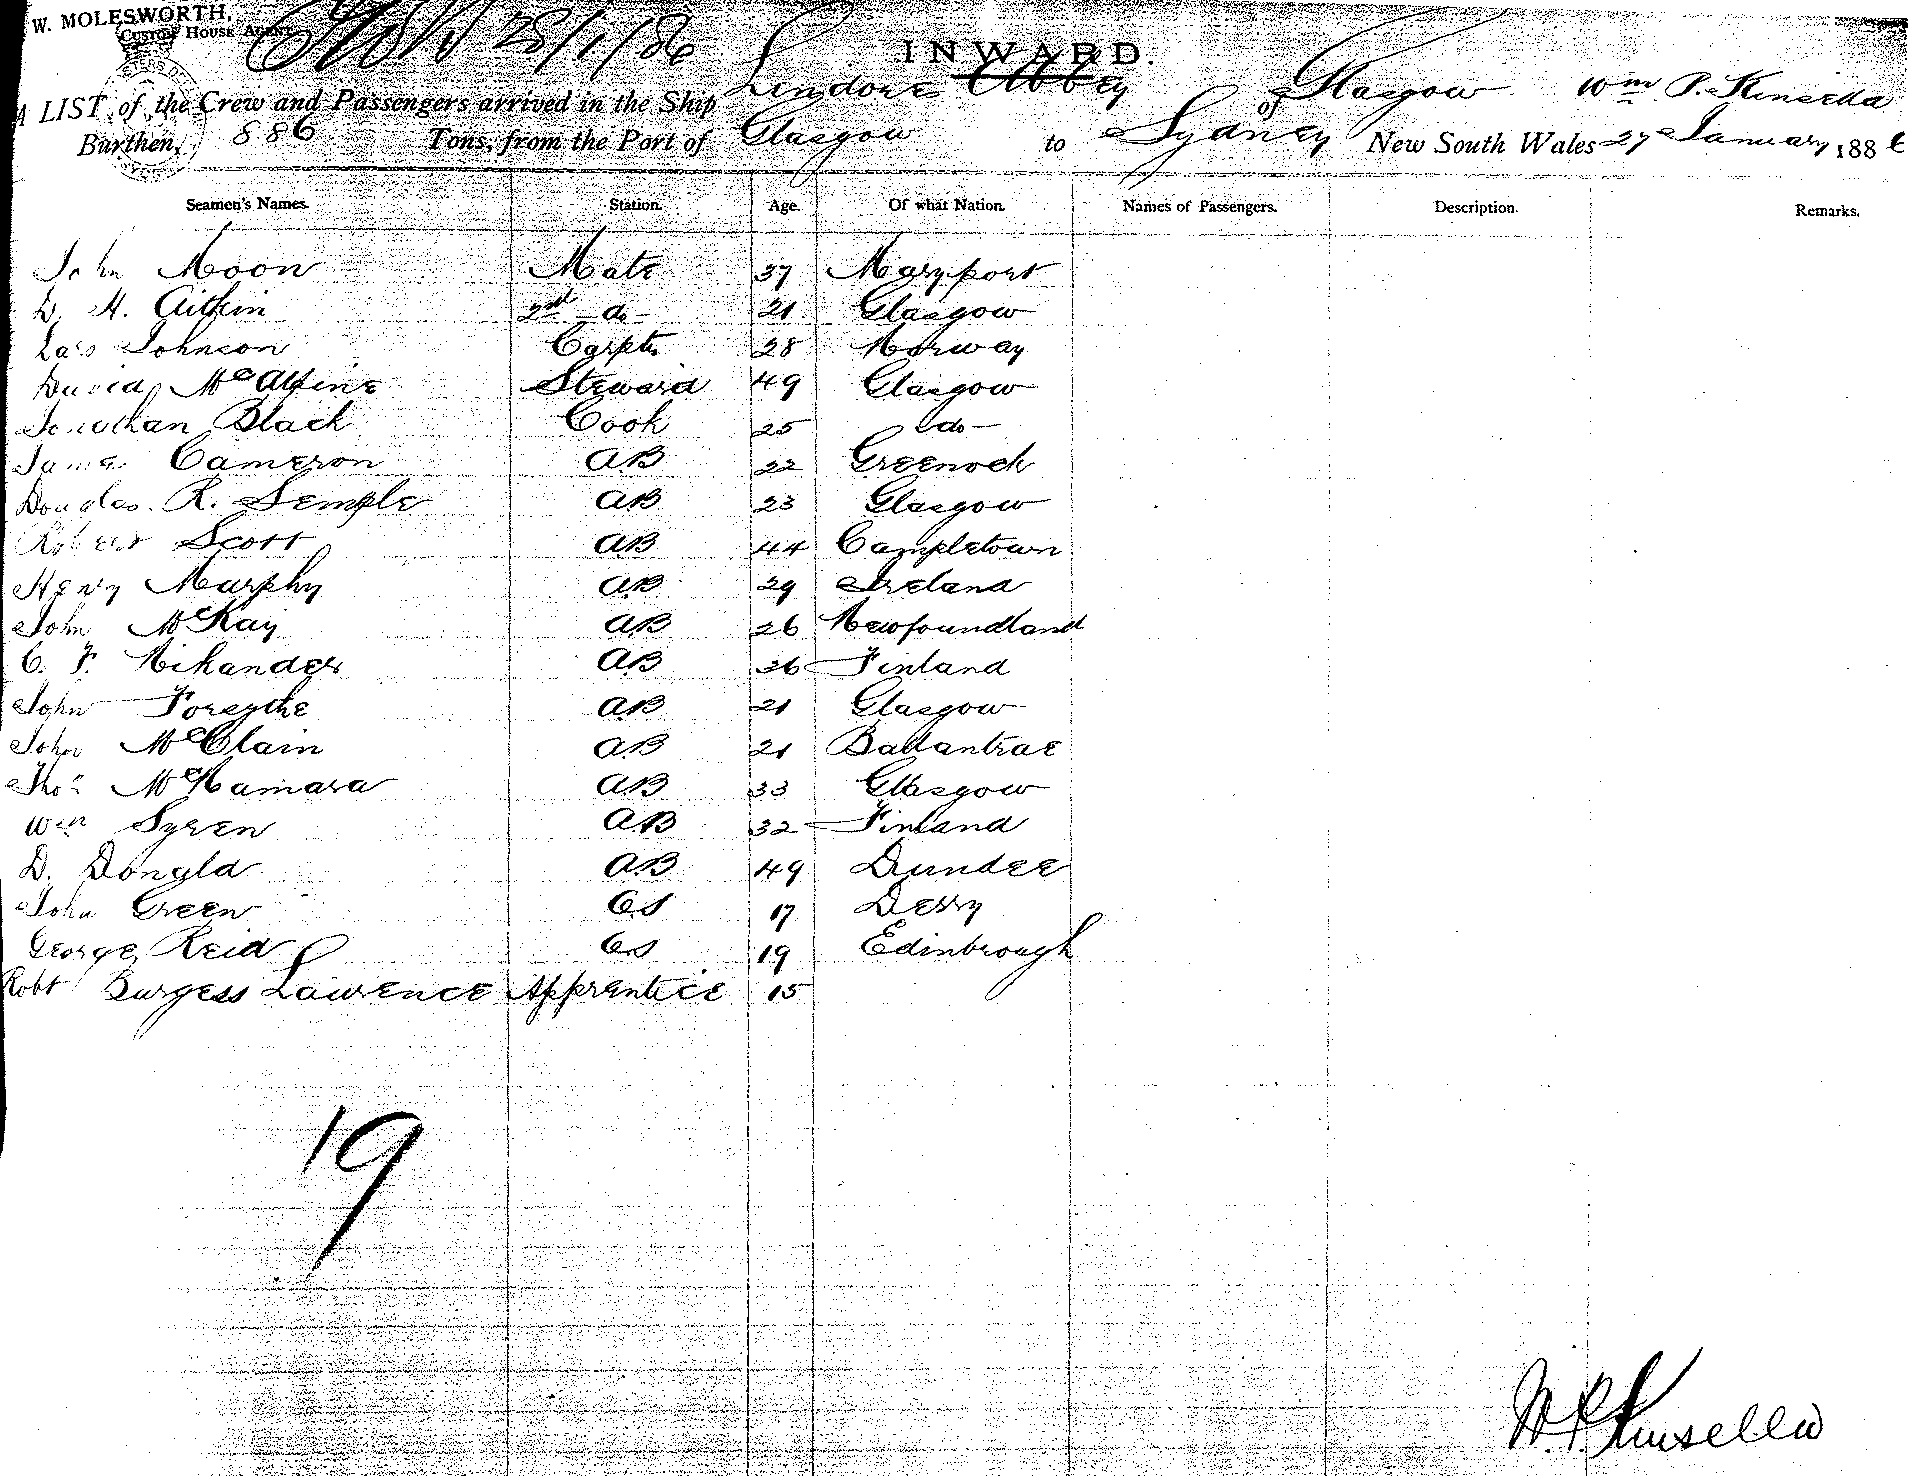 W. MOLESWORTH,
CUSTOM HOUSE AGENT
28/1/86
INWARD.
A LIST of the Crew and Passengers arrived in the Ship Lindores Abbey of Glasgow Wm P. Kinsella
Burthen, 886 Tons, from the Port of Glasgow to Sydney New South Wales 27 January 1886
Seamen's Names. Station. Age. Of what Nation. Names of Passengers. Description. Remarks.
John Moon Mate 37 Maryport
D. H. Aitkin 2nd do 21 Glasgow
Lars Johnson Carptr 28 Norway
David McAlpine Steward 49 Glasgow
Jonathan Black Cook 25 do
James Cameron AB 22 Greenock
Douglas R. Semple AB 23 Glasgow
Robert Scott AB 44 Campletown
Henry Murphy AB 29 Ireland
John McKay AB 26 Newfoundland
C. F. Nikander AB 36 Finland
John Forsythe AB 21 Glasgow
John McClain AB 21 Ballantrae
Thos McNamara AB 33 Glasgow
Wm Syren AB 32 Finland
D. Donald AB 49 Dundee
John Green OS 17 Derry
George Reid OS 19 Edinbrough
Robt Burgess Lawrence Apprentice 15
19
W. P. Kinsella